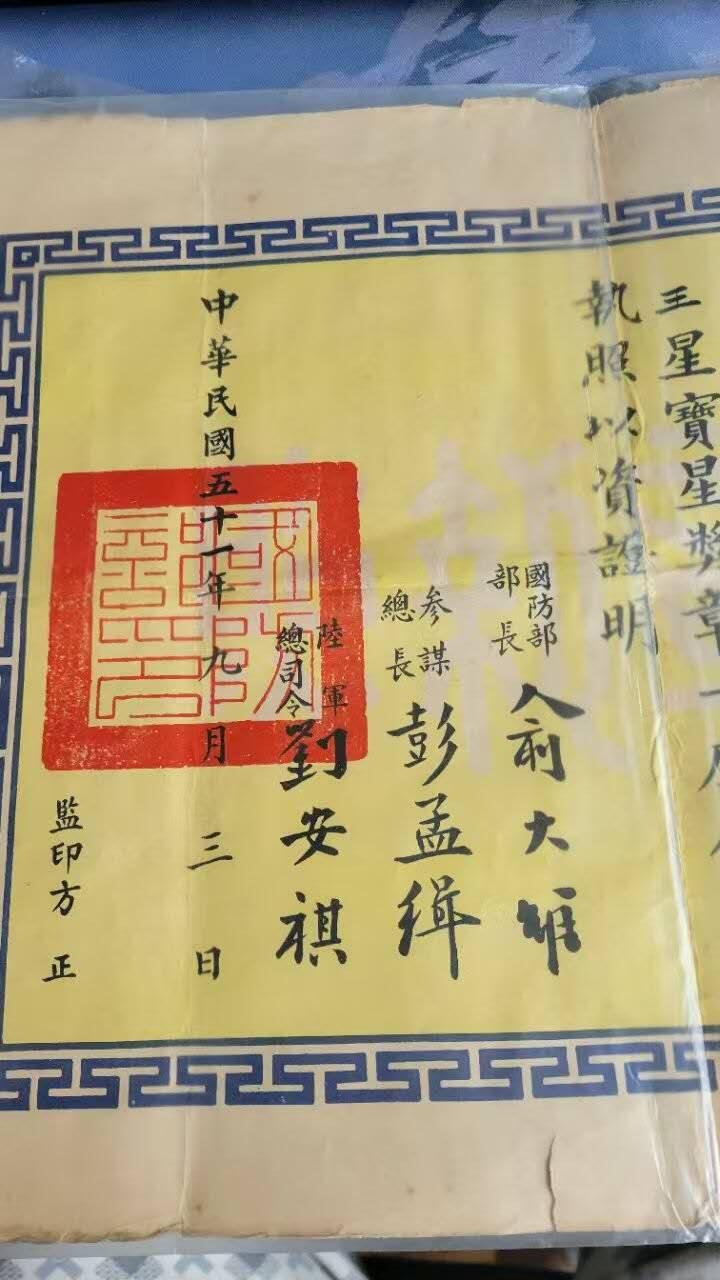 星寶星獎章一
執照以資證明
國防部
部長
俞大維
參謀
總長
彭孟緝
陸軍
總司令
劉安祺
中華民國五十一年九月三日
監印方正